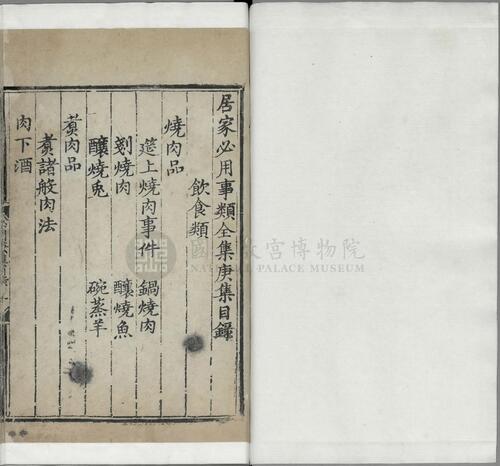 居家必用事類全集庚集目錄
飲食類
燒肉品
筵上燒肉事件 鍋燒肉
剗燒肉 釀燒魚
釀燒兔 碗蒸羊
煑肉品
煑諸般肉法
肉下酒
國立故宮博物院
NATIONAL PALACE MUSEUM